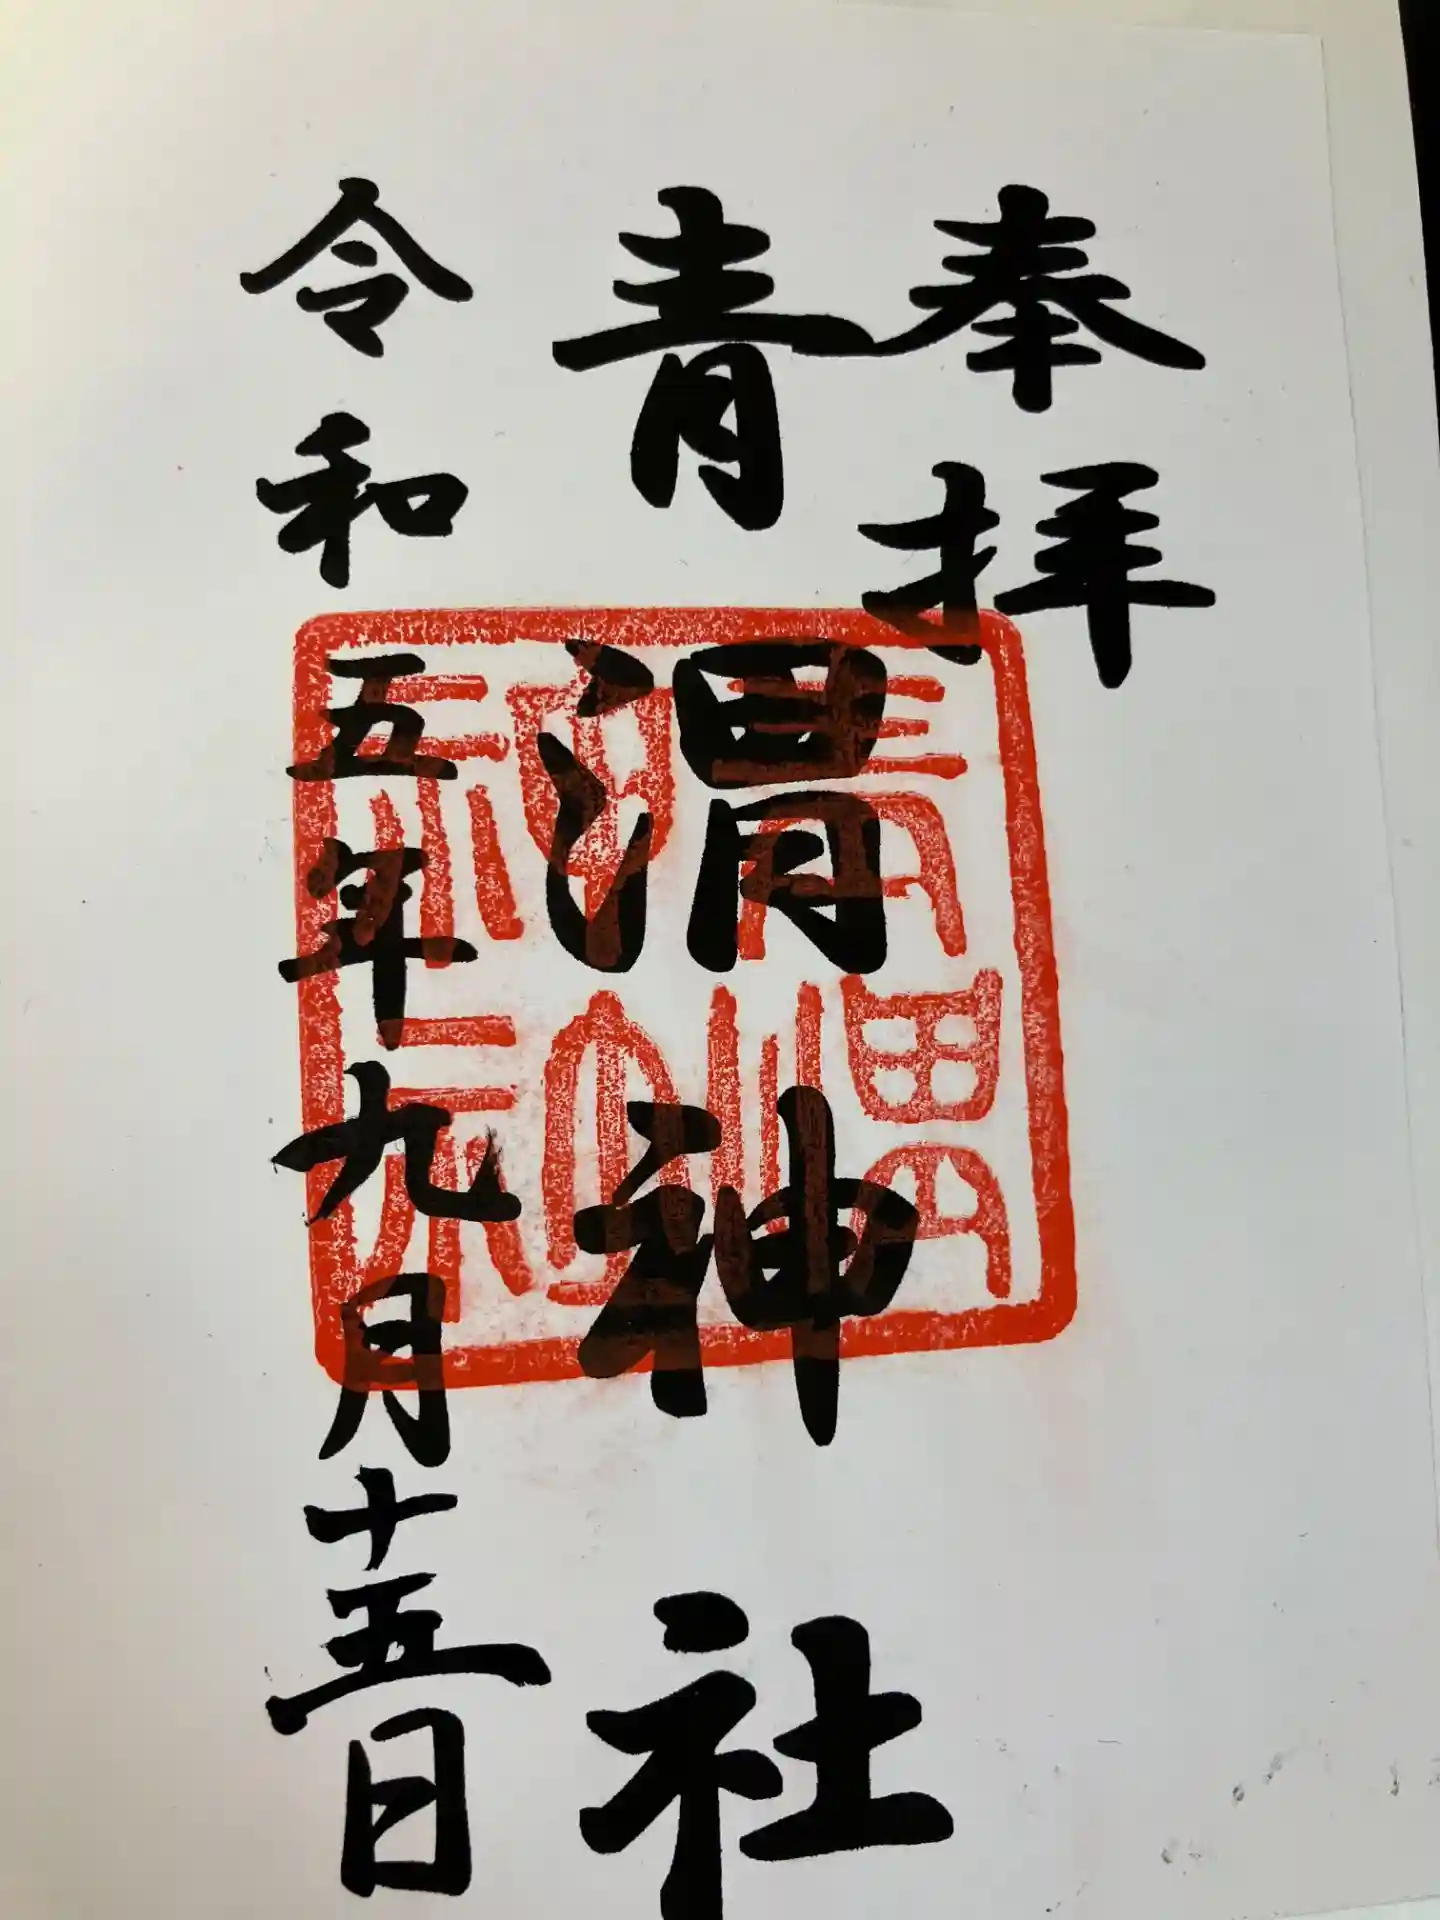 奉拝
青渭神社
令和五年九月十五日
青渭神社